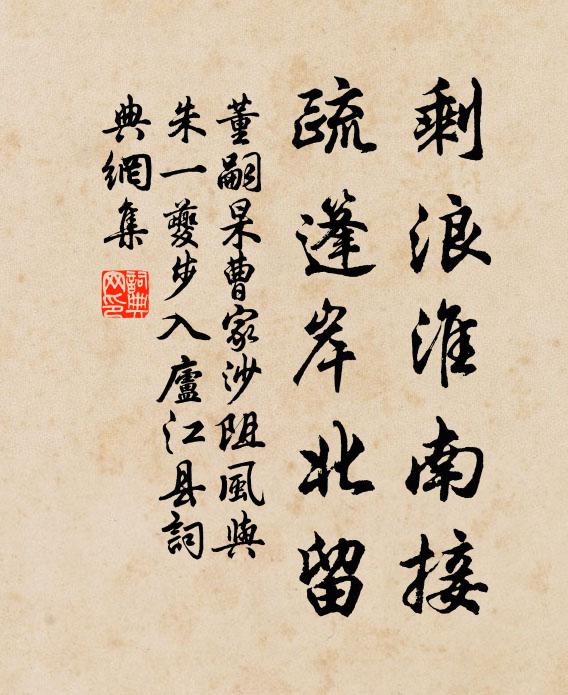 剩浪淮南接
疏蓬岸北留
董嗣杲曹家沙阻風與
朱一夔步入廬江县詞
典網集
詞典
网印